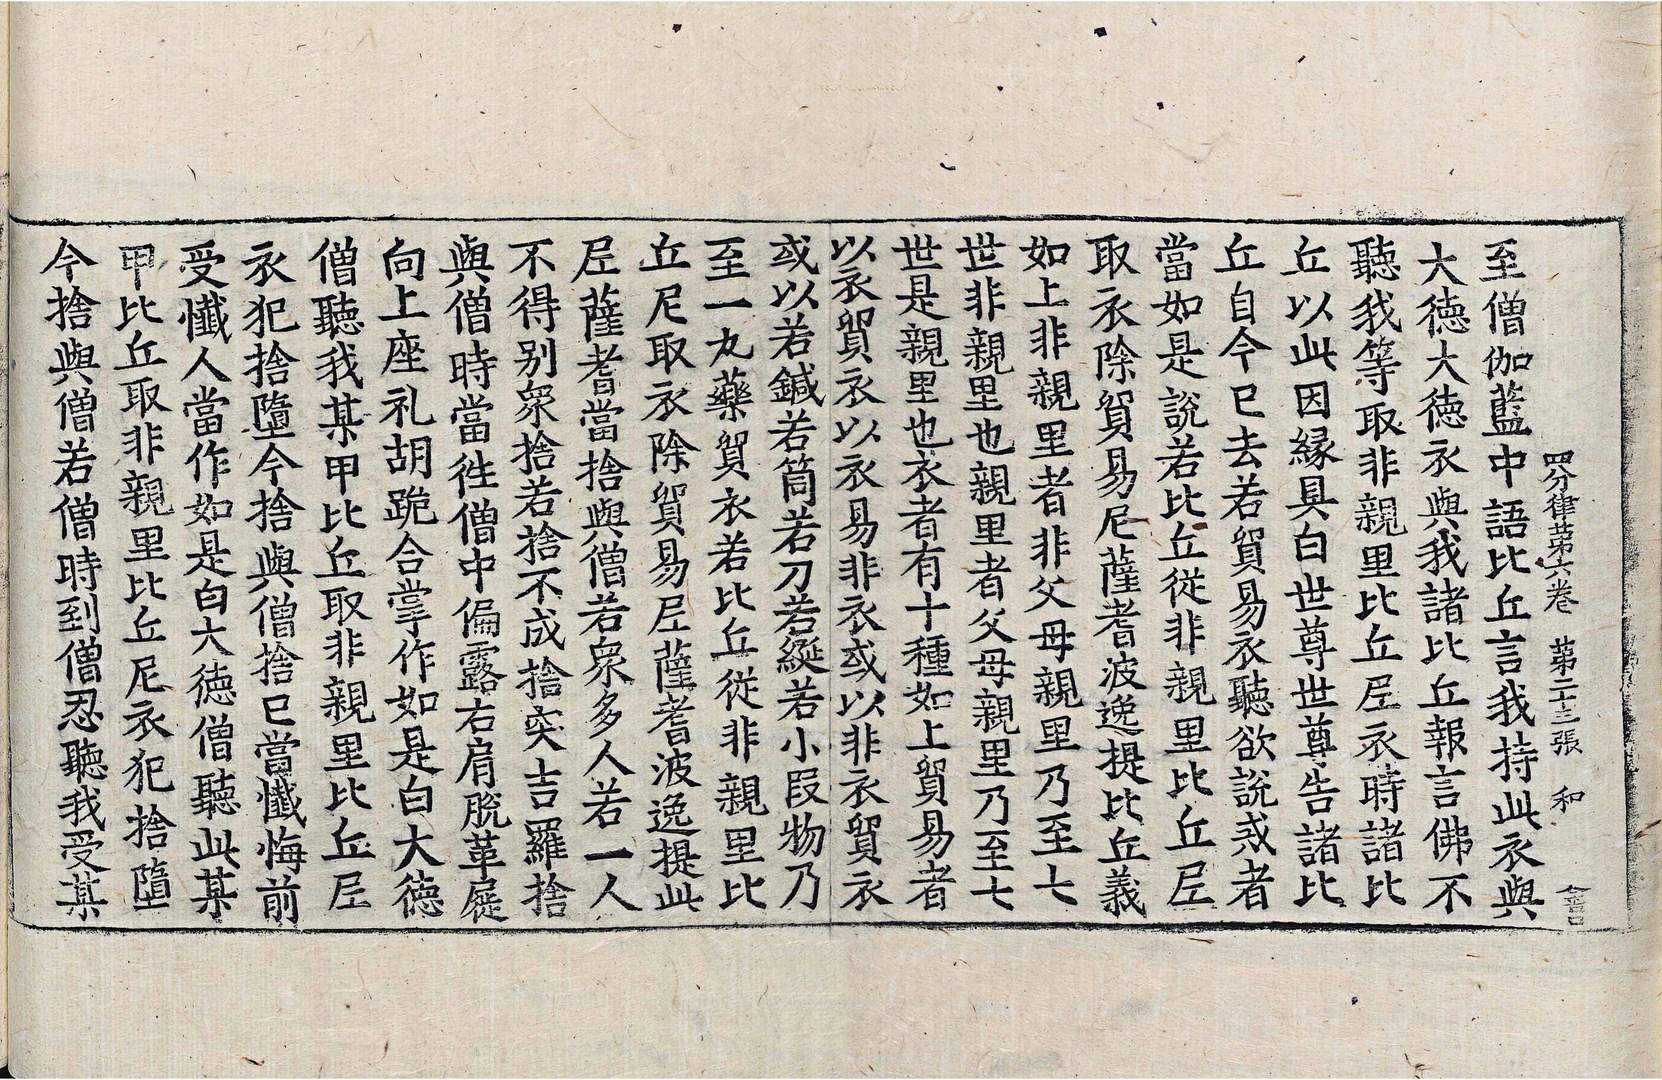 四分律苐六卷 苐二十三張 和
至僧伽藍中語比丘言我持此衣與
大徳大徳衣與我諸比丘報言佛不
聽我等取非親里比丘𡰱衣時諸比
丘以此因緣具白世尊世尊告諸比
丘自今已去若貿易衣聽欲說戒者
當如是說若比丘從非親里比丘𡰱
取衣除貿易尼薩耆波逸提比丘義
如上非親里者非父母親里乃至七
世非親里也親里者父母親里乃至七
世是親里也衣者有十種如上貿易者
以衣貿衣以衣易非衣或以非衣貿衣
或以若鍼若筒若刀若綖若小段物乃
至一丸藥貿衣若比丘從非親里比
丘尼取衣除貿易𡰱薩耆波逸提此
𡰱薩耆當捨與僧若衆多人若一人
不得别衆捨若捨不成捨突吉羅捨
與僧時當徃僧中偏露右肩脫革屣
向上座礼胡跪合掌作如是白大德
僧聽我某甲比丘取非親里比丘𡰱
衣犯捨墮今捨與僧捨已當懺悔前
受懺人當作如是白大德僧聽此某
甲比丘取非親里比丘尼衣犯捨墮
今捨與僧若僧時到僧忍聽我受某